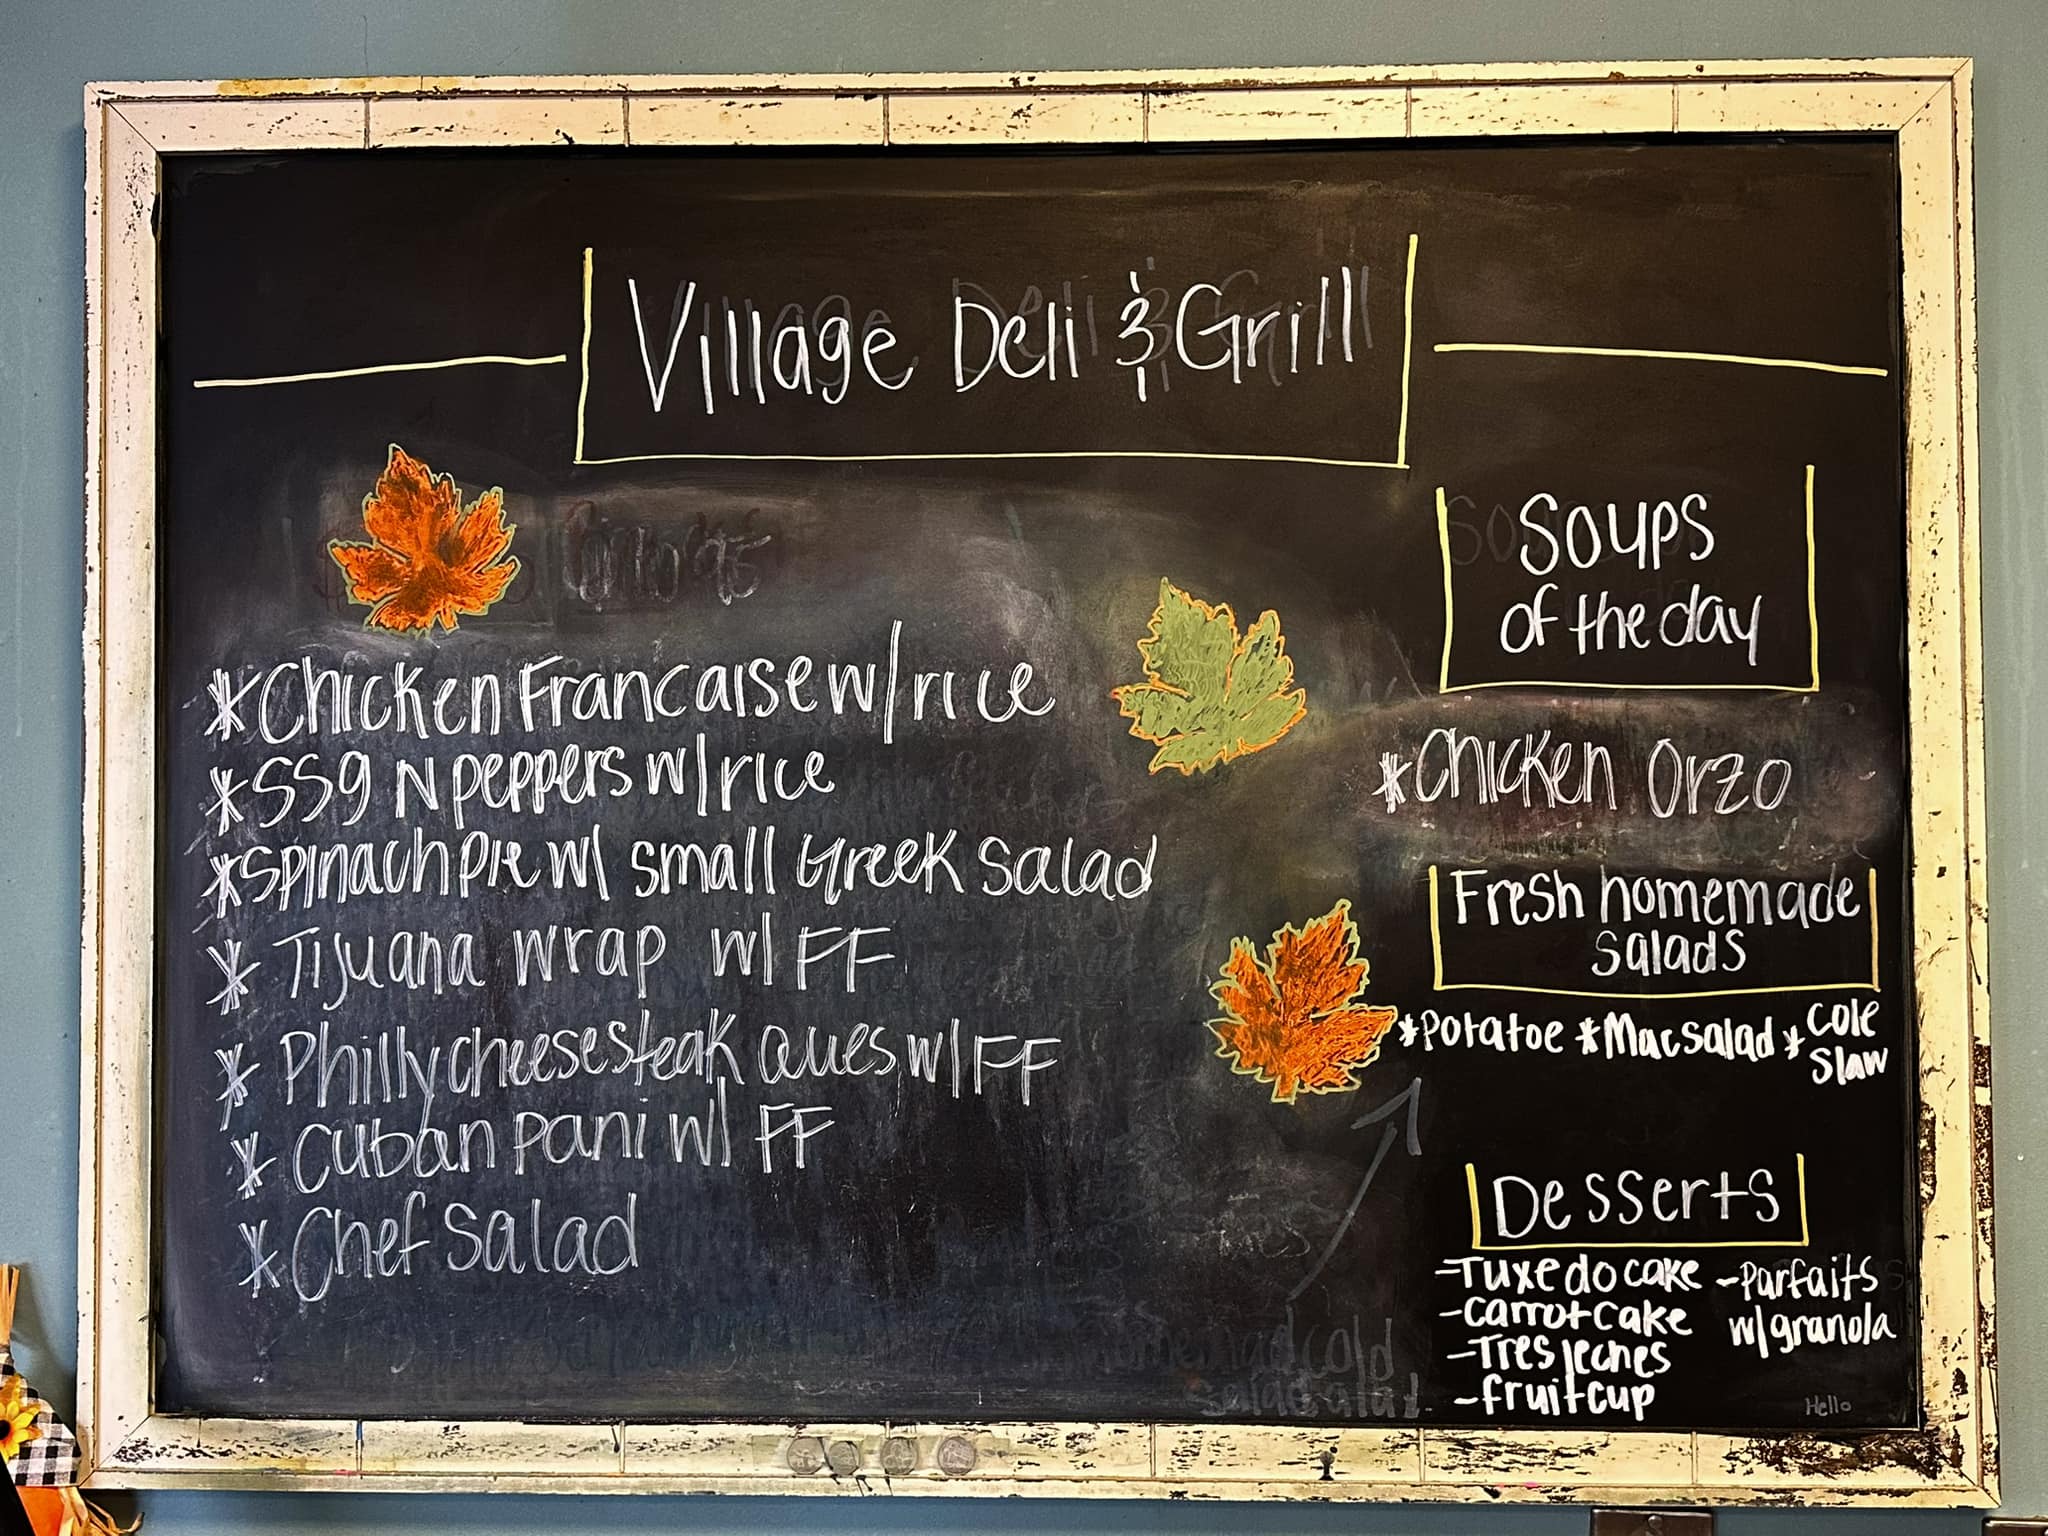 Village Deli & Grill
*Chicken Francaise w/rice
*SSg N peppers w/rice
*Spinach Pie w/ small Greek Salad
* Tijuana wrap w/ FF
* Philly cheesesteak Ques w/ FF
* Cuban pani w/ FF
* Chef Salad
Soups
of the day
*Chicken Orzo
Fresh homemade
salads
*Potatoe *Mac salad * Cole
Slaw
Desserts
-Tuxedo cake
-carrot cake
-Tres leches
-fruit cup
-Parfaits
w/granola
Hello